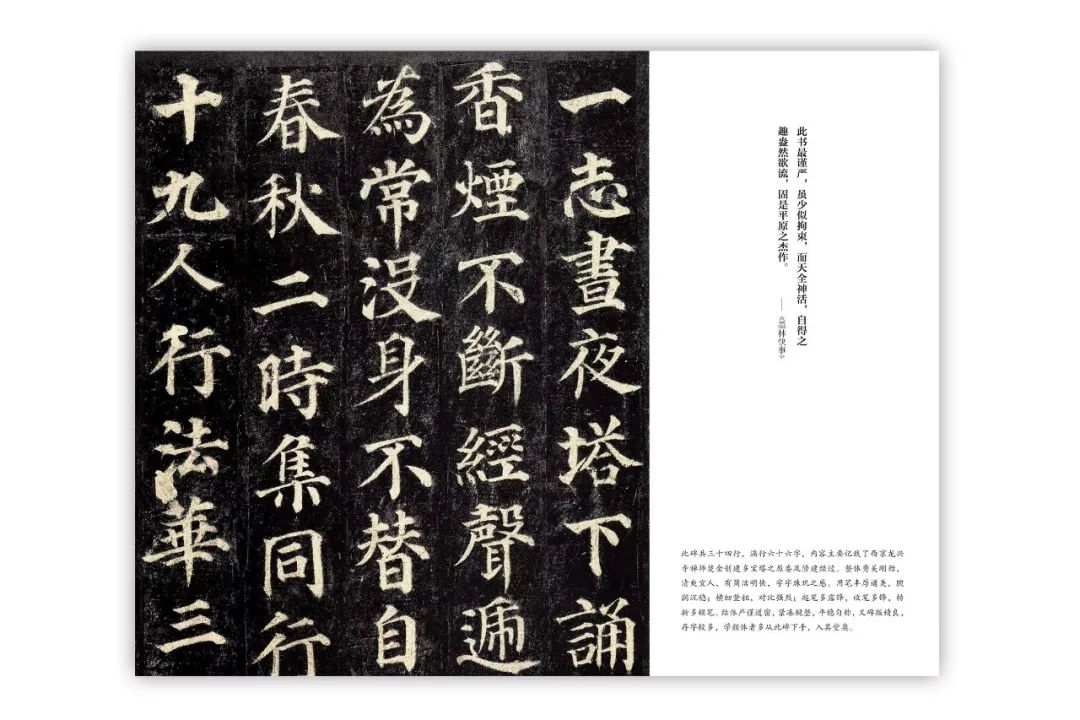 此书最谨严，虽少似拘束，而天全神活，自得之
趣盎然欲流，固是平原之杰作。
——《墨林快事》
此碑共三十四行，满行六十六字，内容主要记载了西京龙兴
寺禅师楚金创建多宝塔之原委及修建经过。整体秀美刚劲，
清爽宜人，有简洁明快，字字珠玑之感。用笔丰厚遒美，腴
润沉稳；横细竖粗，对比强烈；起笔多露锋，收笔多锋，转
折多顿笔。结体严谨遒密，紧凑规整，平稳匀称，又碑版精良，
存字较多，学颜体者多从此碑下手，入其堂奥。
一志晝夜塔下誦
香煙不斷經聲遞
為常沒身不替自
春秋二時集同行
十九人行法華三